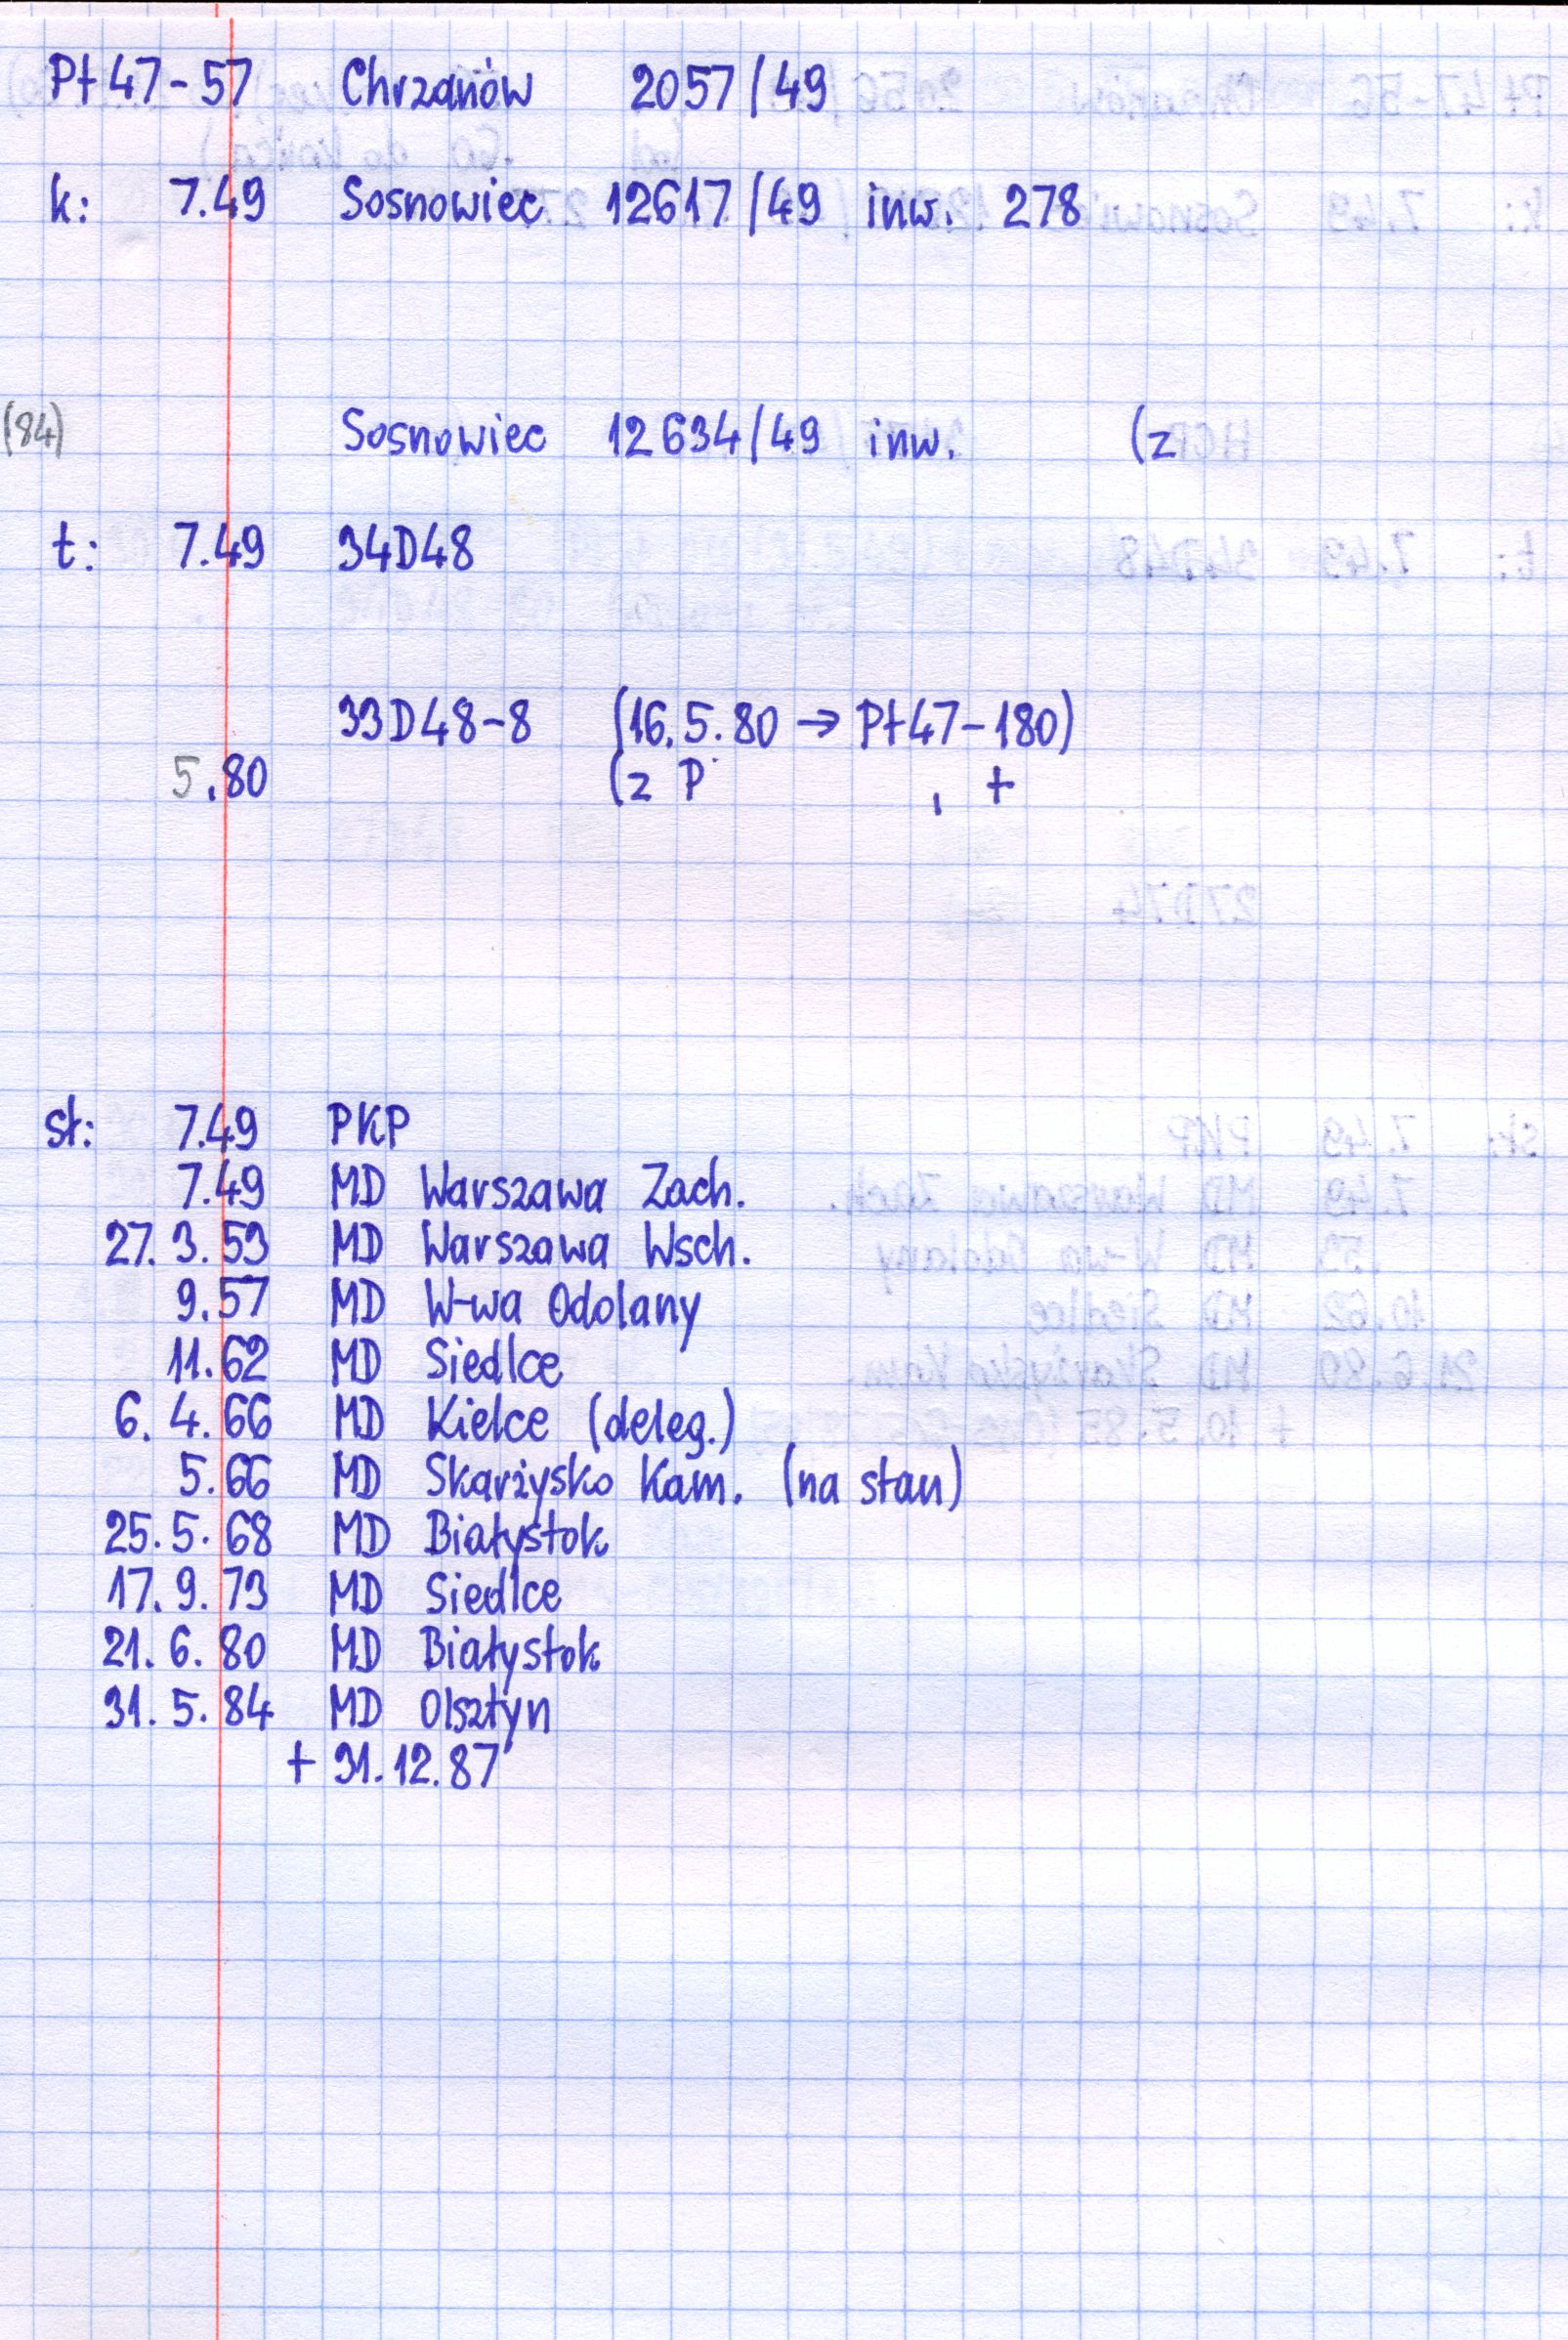 Pt47-57 Chrzanów 2057/49
k: 7.49 Sosnowiec 12617/49 inw. 278
(84) Sosnowiec 12634/49 inw. (z
t: 7.49 34D48
33D48-8 (16.5.80 → Pt47-180)
5.80 (z P , +
st: 7.49 PKP
7.49 MD Warszawa Zach.
27.3.53 MD Warszawa Wsch.
9.57 MD W-wa Odolany
11.62 MD Siedlce
6.4.66 MD Kielce (deleg.)
5.66 MD Skarżysko Kam. (na stan)
25.5.68 MD Białystok
17.9.73 MD Siedlce
21.6.80 MD Białystok
31.5.84 MD Olsztyn
+ 31.12.87